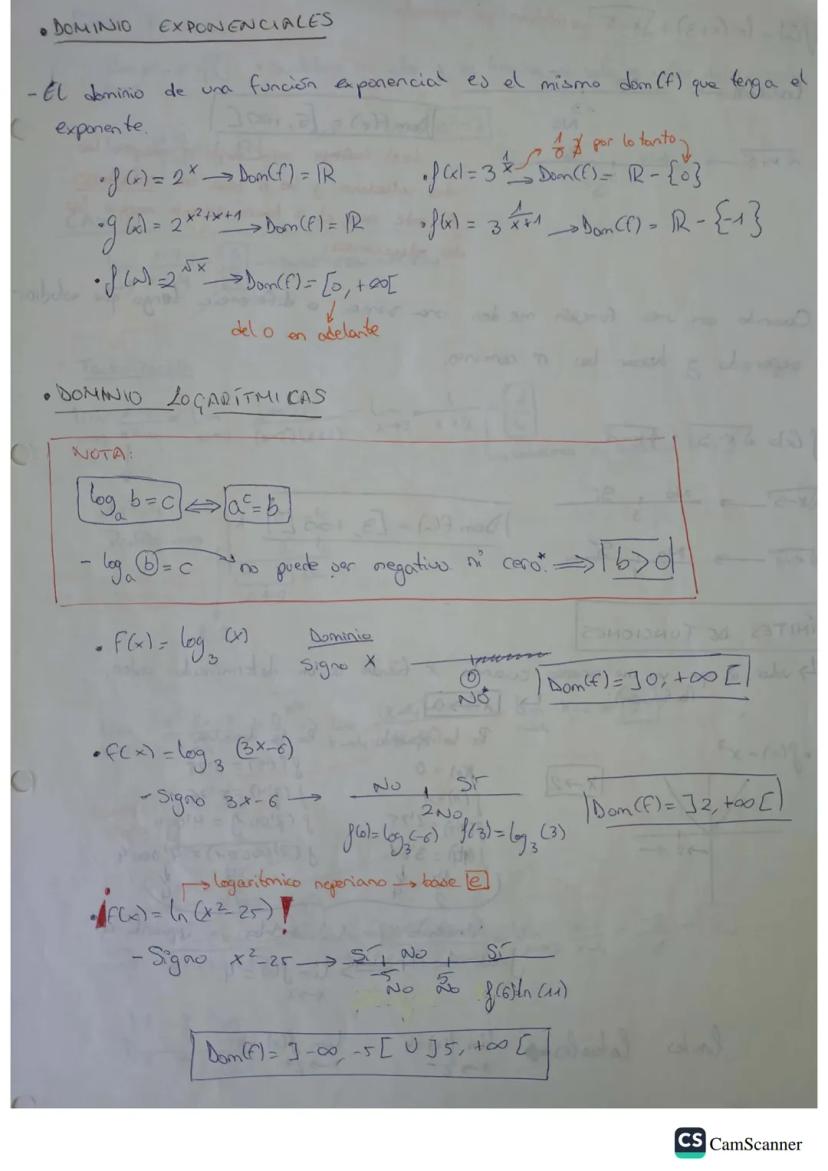 • DOMINIO EXPONENCIALES
- El dominio de una función exponencial es el mismo dom(f) que tenga el
exponente.
• f(x) = 2^x → Dom(f) = ℝ
• g(x) = 2^(x²+x+1) → Dom(f) = ℝ
• f(x) = 2^√x → Dom(f) = [0, +∞[
del 0 en adelante
1/0 ∄ por lo tanto
• f(x) = 3^(1/x) → Dom(f) = ℝ - {0}
• f(x) = 3^(1/(x+1)) → Dom(f) = ℝ - {-1}
• DOMINIO LOGARÍTMICAS
NOTA:
log_a b = c ⟺ a^c = b
- log_a b = c → no puede ser negativo ni cero* ⟹ b > 0
• f(x) = log_3 (x) Dominio
Signo x
0
NO*
Dom(f) = ]0, +∞[
• f(x) = log_3 (3x-6)
- Signo 3x-6 → No Sí
2 No
f(0) = log_3(-6) f(3) = log_3(3)
Dom(f) = ]2, +∞[
→ logaritmico neperiano → base e
• ¡f(x) = ln (x²-25)!
- Signo x²-25 → Sí No Sí
-5 5
No No f(6) ln (11)
Dom(f) = ]-∞, -5[ U ]5, +∞[
CS CamScanner